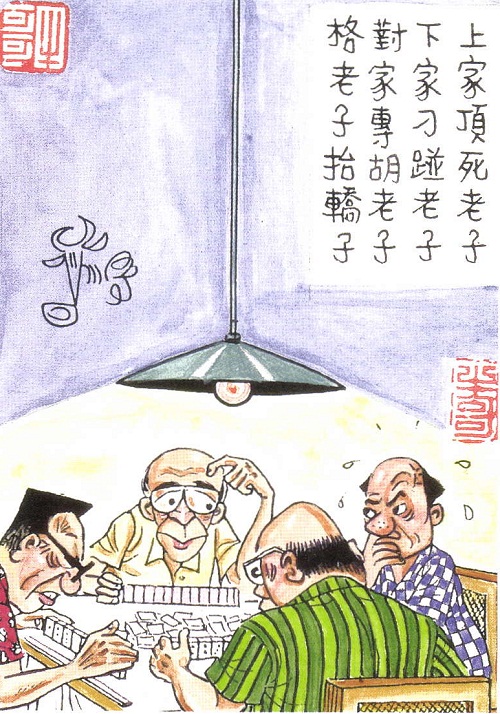 上家頂死老子
下家刁踫老子
對家專胡老子
格老子抬轎子